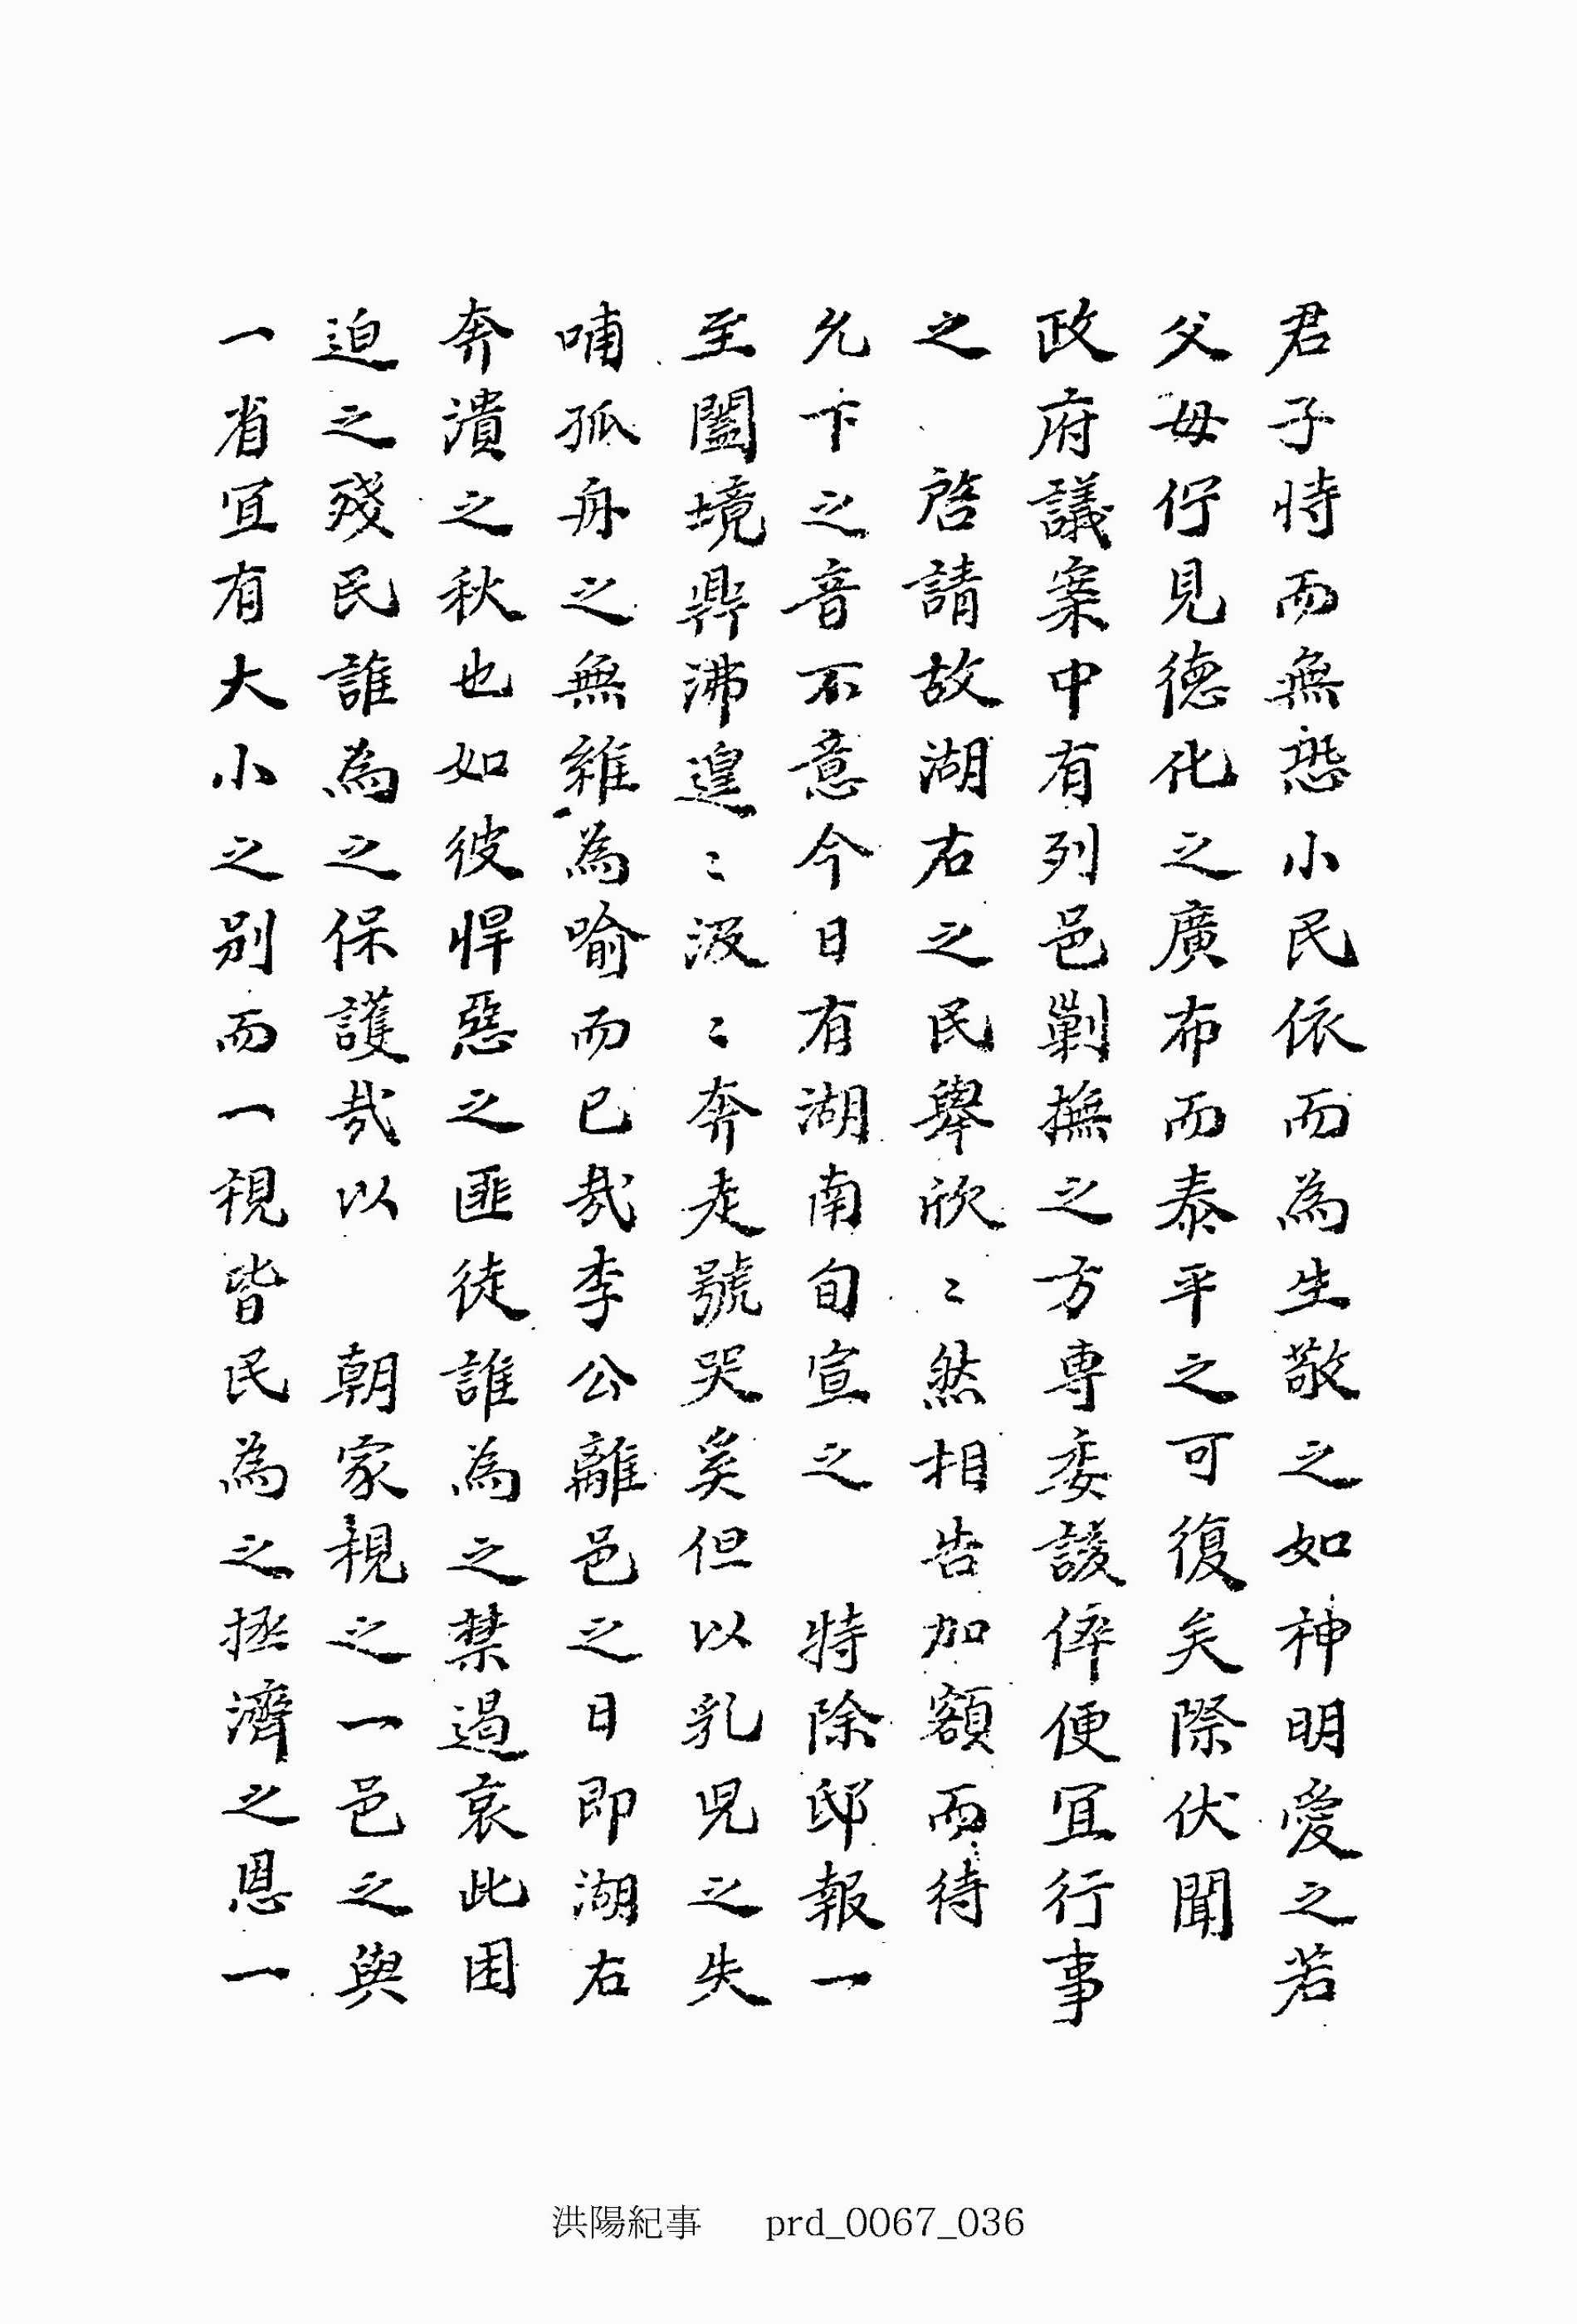 君子恃而無恐小民依而為生敬之如神明愛之若
父母佇見德化之廣布而泰平之可復矣際伏聞
政府議案中有列邑剿撫之方專委該倅便宜行事
之 啓請故湖右之民擧欣〻然相告加額而待
允下之音不意今日有湖南旬宣之 特除邸報一
至闔境鼎沸遑〻汲〻奔走號哭奚但以乳兒之失
哺孤舟之無維為喻而已哉李公離邑之日即湖右
奔潰之秋也如彼悍惡之匪徒誰為之禁遏哀此困
迫之殘民誰為之保護哉以 朝家視之一邑之與
一省宜有大小之別而一視皆民為之拯濟之恩一
洪陽紀事 prd_0067_036